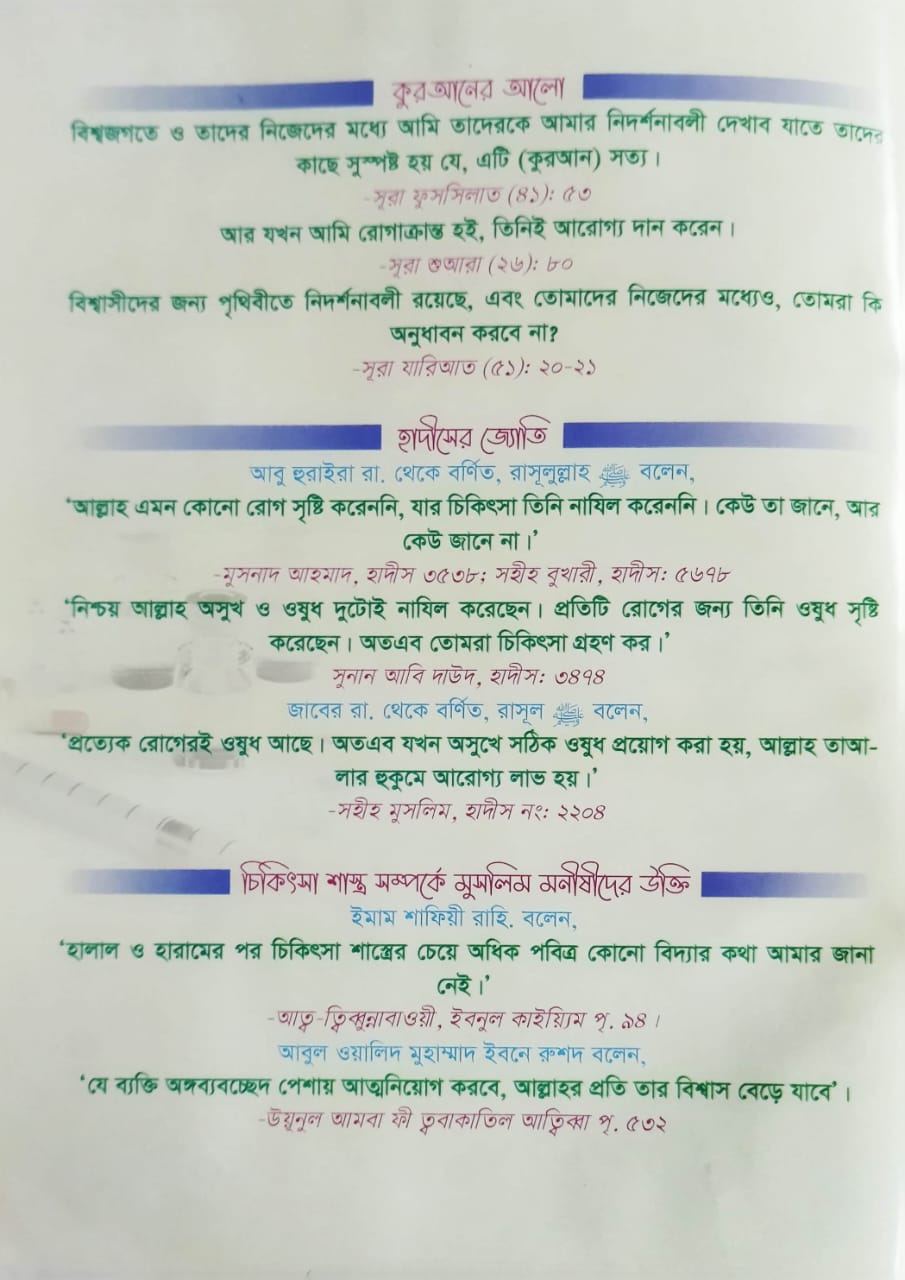 কুরআনের আলো
বিশ্বজগতে ও তাদের নিজেদের মধ্যে আমি তাদেরকে আমার নিদর্শনাবলী দেখাব যাতে তাদের
কাছে সুস্পষ্ট হয় যে, এটি (কুরআন) সত্য।
-সূরা ফুসসিলাত (৪১): ৫৩
আর যখন আমি রোগাক্রান্ত হই, তিনিই আরোগ্য দান করেন।
-সূরা শুআরা (২৬): ৮০
বিশ্বাসীদের জন্য পৃথিবীতে নিদর্শনাবলী রয়েছে, এবং তোমাদের নিজেদের মধ্যেও, তোমরা কি
অনুধাবন করবে না?
-সূরা যারিআত (৫১): ২০-২১
হাদীসের জ্যোতি
আবু হুরাইরা রা. থেকে বর্ণিত, রাসূলুল্লাহ ﷺ বলেন,
‘আল্লাহ এমন কোনো রোগ সৃষ্টি করেননি, যার চিকিৎসা তিনি নাযিল করেননি। কেউ তা জানে, আর
কেউ জানে না।’
-মুসনাদ আহমাদ, হাদীস ৩৫৩৮; সহীহ বুখারী, হাদীস: ৫৬৭৮
‘নিশ্চয় আল্লাহ অসুখ ও ওষুধ দুটোই নাযিল করেছেন। প্রতিটি রোগের জন্য তিনি ওষুধ সৃষ্টি
করেছেন। অতএব তোমরা চিকিৎসা গ্রহণ কর।’
সুনান আবি দাউদ, হাদীস: ৩৪৭৪
জাবের রা. থেকে বর্ণিত, রাসূল ﷺ বলেন,
‘প্রত্যেক রোগেরই ওষুধ আছে। অতএব যখন অসুখে সঠিক ওষুধ প্রয়োগ করা হয়, আল্লাহ তাআ-
লার হুকুমে আরোগ্য লাভ হয়।’
-সহীহ মুসলিম, হাদীস নং: ২২০৪
চিকিৎসা শাস্ত্র সম্পর্কে মুসলিম মনীষীদের উক্তি
ইমাম শাফিয়ী রাহি. বলেন,
‘হালাল ও হারামের পর চিকিৎসা শাস্ত্রের চেয়ে অধিক পবিত্র কোনো বিদ্যার কথা আমার জানা
নেই।’
-আত্ব-ত্বিব্বুন্নাবাওয়ী, ইবনুল কাইয়্যিম পৃ. ৯৪।
আবুল ওয়ালিদ মুহাম্মাদ ইবনে রুশদ বলেন,
‘যে ব্যক্তি অঙ্গব্যবচ্ছেদ পেশায় আত্মনিয়োগ করবে, আল্লাহর প্রতি তার বিশ্বাস বেড়ে যাবে’।
-উয়ূনুল আমবা ফী ত্ববাকাতিল আত্বিব্বা পৃ. ৫৩২